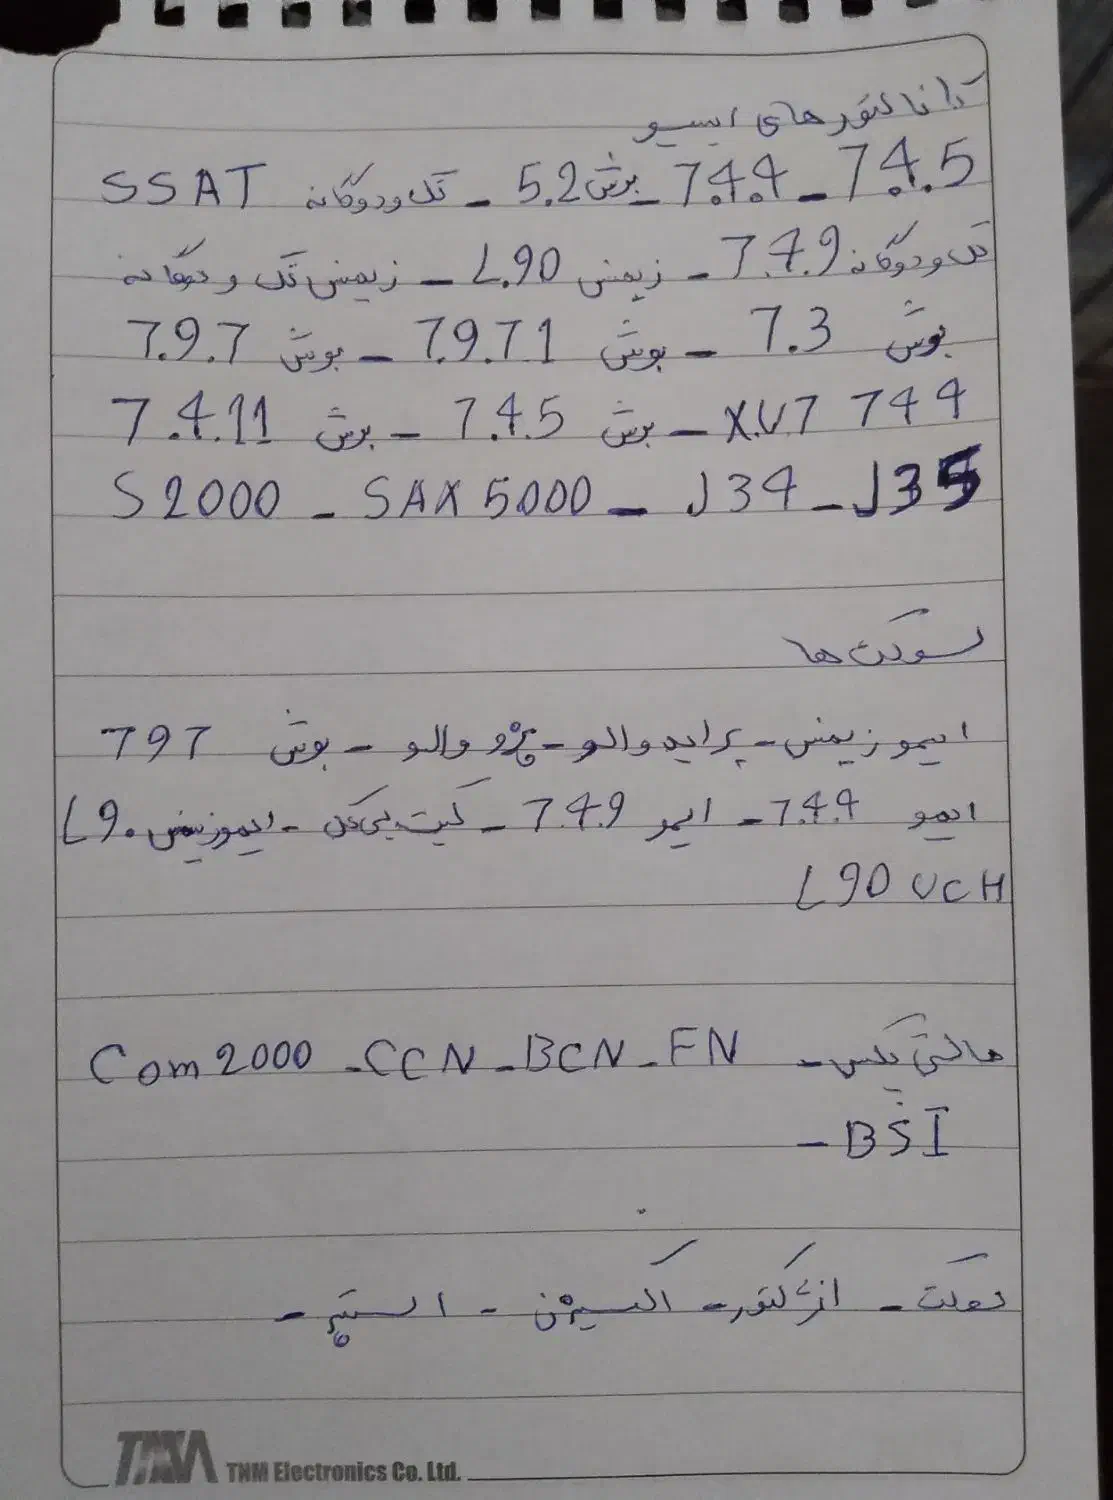 کانکتور های ایسیو
7.4.5 - 7.4.4 - بوش 5.2 - تک و دوگانه SSAT
تک و دوگانه 7.4.9 - زیمنس L.90 - زیمنس تک و دوگانه
بوش 7.3 - بوش 7.9.71 - بوش 7.9.7
X.U.7 744 - بوش 7.4.5 - بوش 7.4.11
J35 - J34 - SAX 5000 - S2000
سوکت ها
ایمو زیمنس - پراید والو - پژو والو - بوش 797
ایمو 7.4.4 - ایمو 7.4.9 - کیت - ایموزیمنس L90
L90 UCH
مالتی پلکس - Com2000 - CCN - BCN - FN
- BSI
سوکت - انژکتور - اکسیژن - استپر -
TNM Electronics Co. Ltd.